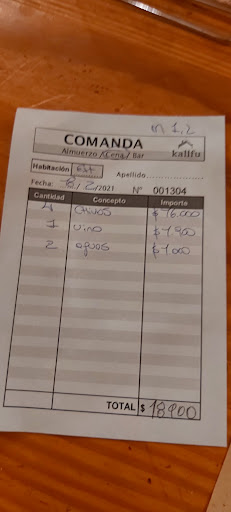 m 1,2
COMANDA
Almuerzo / Cena / Bar
kallfu
Habitación
Apellido
Fecha: 8/2/2021 N° 001304
Cantidad Concepto Importe
4 CHIVOS $ 16.000
1 vino $ 1.900
2 aguas $ 1.000
TOTAL $ 18900